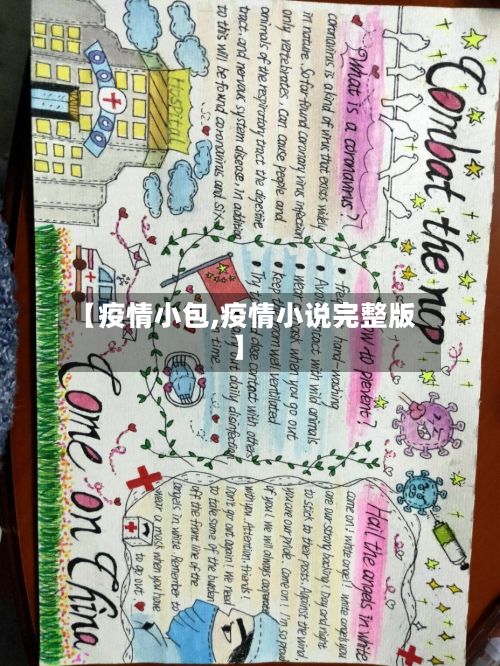 Combat the ncp
What is a coronavirus?
coronavirus is a kind of virus that exists widely
in nature. So far found coronary virus infection
only vertebrates, can cause people and
animals of the respiratory tract the digestive
tract and nervous system disease. In addition
to this will be found coronavirus and six
Hospital
How to prevent?
hand-washing
contact with wild animals
wear mask when you go out
Keep room well ventilated
close contact with others
out daily disinfection
time.
【疫情小包,疫情小说完整版
】
Hail the angels in white
come on! white angel! white angels you
are our strong backing! Day and night
to stick to their posts. Against the wind,
you are our pride. Come on! I'm so proud
of you! We will always
with you. Attention, friends!
Don't go out again! We need
to take some of the burden
off the front line of the
angels in white. Remember to
wear a mask when you have
to go out.
Come on China